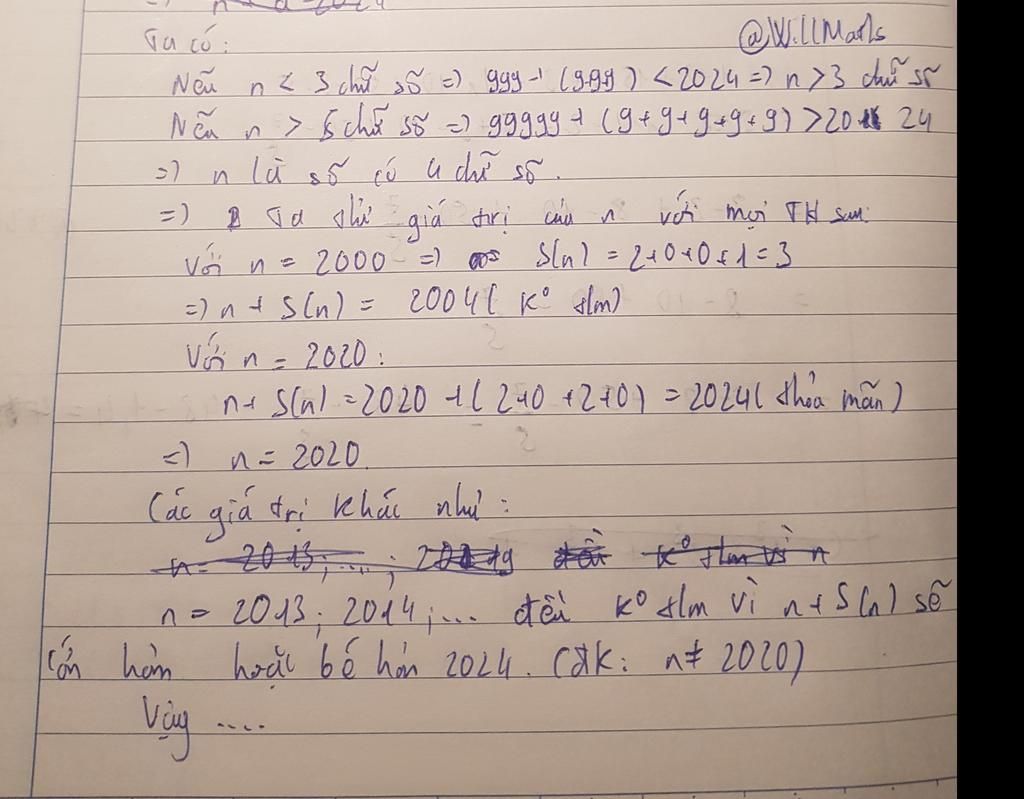 Ta có:
@WillMaths
Nếu n < 3 chữ số => 999 + (9.9.9) < 2024 => n > 3 chữ số
Nếu n > 5 chữ số => 99999 + (9+9+9+9+9) > 20 24
=> n là số có 4 chữ số.
=> Ta thử giá trị của n với mọi TH sau:
Với n = 2000 => S(n) = 2+0+0+1 = 3
=> n + S(n) = 2004 ( K° t/m)
Với n = 2020:
n + S(n) = 2020 + ( 2+0 +2+0) = 2024 ( thỏa mãn )
=> n = 2020.
Các giá trị khác như:
n = 2013; ....; 2019 đều K° t/m vì n
n = 2013; 2014; ... đều K° t/m vì n + S(n) sẽ
lớn hơn hoặc bé hơn 2024. (ĐK: n ≠ 2020)
Vậy ....